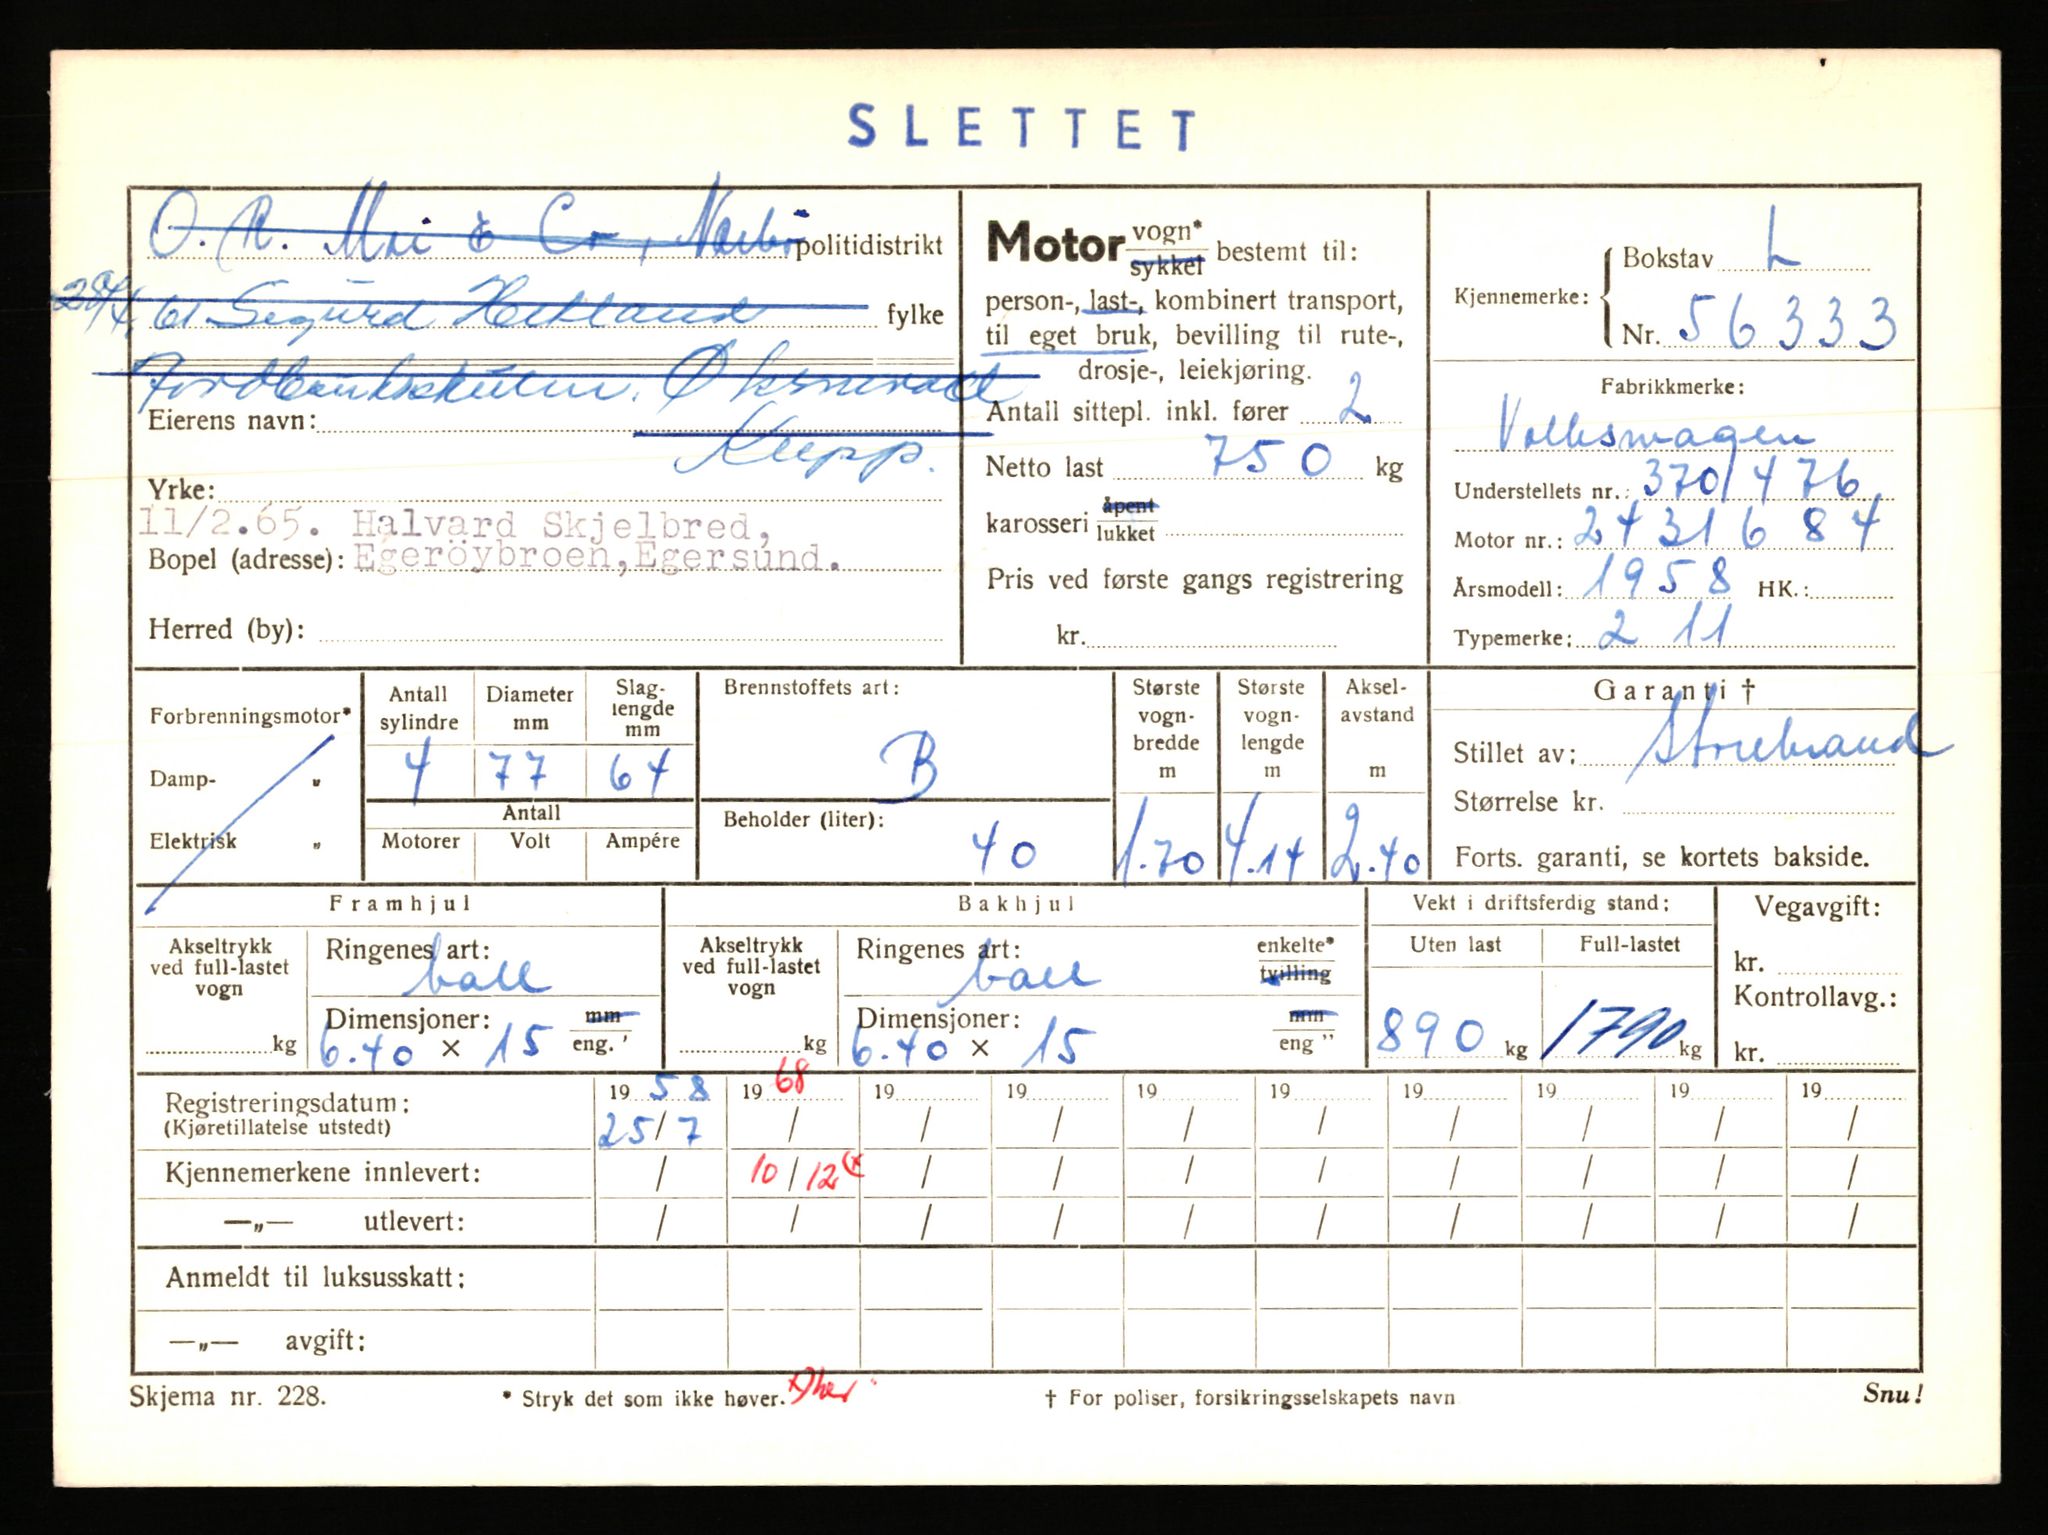 SLETTET
O. R. & Co, Nærbø politidistrikt
28/4. 61 Sigurd fylke
Øksnevad
Eierens navn:
Klepp.
Yrke:
11/2.65. Halvard Skjelbred,
Bopel (adresse): Egeröybroen, Egersund.
Herred (by):
Motor vogn* sykkel bestemt til:
person-, last-, kombinert transport,
til eget bruk, bevilling til rute-,
drosje-, leiekjøring.
Antall sittepl. inkl. fører 2
Netto last 750 kg
karosseri åpent lukket
Pris ved første gangs registrering
kr.
Kjennemerke: Bokstav L
Nr. 56333
Fabrikkmerke:
Volkswagen
Understellets nr.: 370/476
Motor nr.: 2431684
Årsmodell: 1958 HK.:
Typemerke: 211
Forbrenningsmotor*
Damp- "
Elektrisk "
Antall sylindre Diameter mm Slaglengde mm
4 77 64
Antall
Motorer Volt Ampére
Brennstoffets art:
B
Beholder (liter):
40
Største vognbredde m
1.70
Største vognlengde m
4.14
Akselavstand m
2.40
Garanti †
Stillet av: Storebrand
Størrelse kr.
Forts. garanti, se kortets bakside.
Framhjul
Akseltrykk ved full-lastet vogn
kg
Ringenes art: ball
Dimensjoner: mm
6.40 × 15 eng. '
Bakhjul
Akseltrykk ved full-lastet vogn
kg
Ringenes art: ball enkelte* tvilling
Dimensjoner: mm
6.40 × 15 eng "
Vekt i driftsferdig stand:
Uten last Full-lastet
890 kg 1790 kg
Vegavgift:
kr.
Kontrollavg.:
kr.
Registreringsdatum: 19 58 19 68 19 19 19 19 19 19 19 19
(Kjøretillatelse utstedt) 25/7 / / / / / / / / /
Kjennemerkene innlevert: / 10/12 (x / / / / / / / /
—„— utlevert: / / / / / / / / / /
Anmeldt til luksusskatt:
—„— avgift:
Skjema nr. 228. * Stryk det som ikke høver. † For poliser, forsikringsselskapets navn Snu!